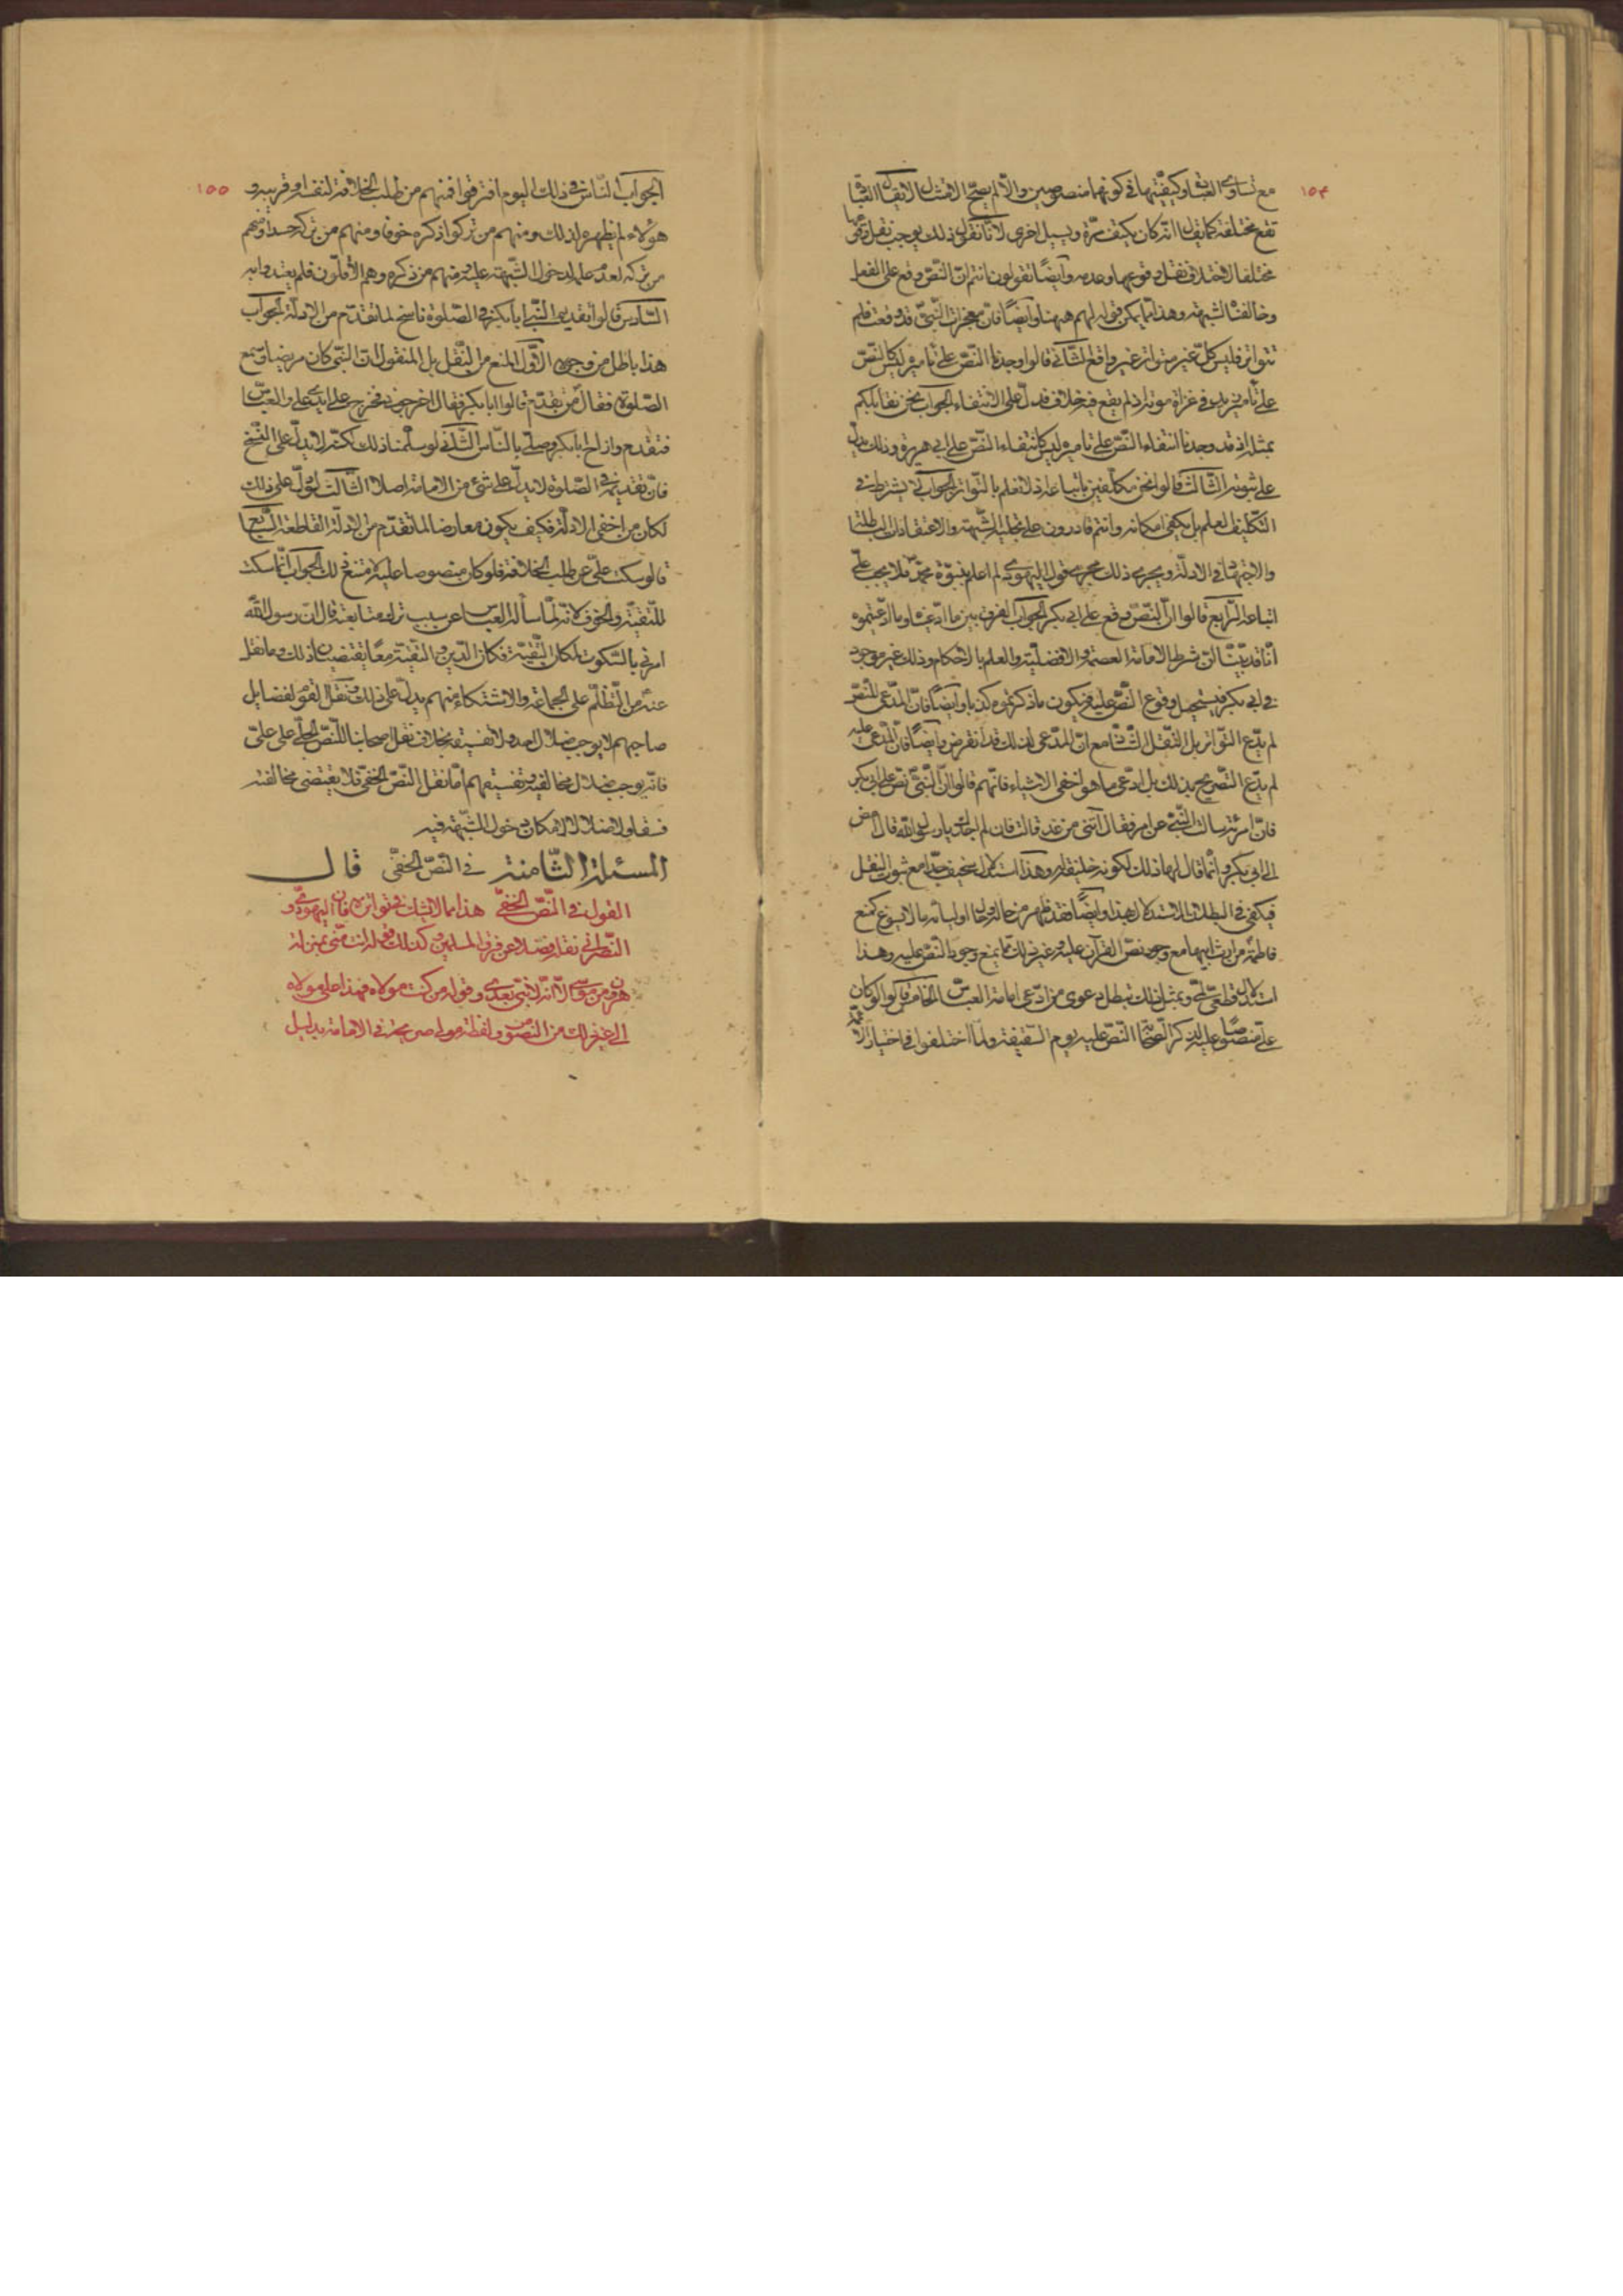 ١٥٤
مع تساوي القتا وكيفيتها في كونهما منصوصين والا لم يصح الامتثال لا يقال القتا
تقع مختلفة كما يقال انه كان يكتف مرة ويسبل اخرى لانا نقول ذلك يوجب نقل
مختلفا لاختلاف نقل وقوعها وعدمه وايضا تقولون انتم ان النص وقع على الفعل
وخالفت الشبهة وهذا لا يمكن قوله لهم ههنا وايضا فان معجزات النبي قد وقعت فلم
تتواتر فليس كل غير متواتر غير واقع الثاني قالوا وجدنا النص على تاميره ليس كالنص
على تامير زيد في غزاة موتة اذ لم يقع فيه خلاف فدل على الانتفاء الجواب نحن نقابلكم
بمثله اذ قد وجدنا انتفاء النص على تاميره ليس كانتفاء النص على ابي هريرة وذلك يدل
على ثبوته الثالث قالوا نحن مكلفين باتباعه اذ لا نعلم بالتواتر الجواب لا يشترط في
التكليف العلم بل يكفي امكانه وانتم قادرون على تخلية الشبهة والاعتقادات الباطلة
والاجتهاد في الادلة ويجري ذلك مجرى قول اليهودي لم اعلم بنبوة محمد فلا يجب علي
اتباعه الرابع قالوا ان النص وقع على ابي بكر الجواب الفرق بين ما ادعيناه وما ادعيتموه
انا قد بينا ان شرط الامامة العصمة والافضلية والعلم بالاحكام وذلك غير موجود
في ابي بكر فيستحيل وقوع النص عليه فيكون ما ذكرتموه كذبا وايضا فان المدعي للنص
لم يدع التواتر بل النقل الشاذ مع ان المدعي لذلك قد انقرض وايضا فان المدعي عليه
لم يدع التصريح بذلك بل ادعى ما هو اخفى الاشياء فانهم قالوا ان النبي نص على ابي بكر
فان امرئة سالت النبي عن امر فقال آتني من غد قالت فان لم اجدك يا رسول الله قال امض
الى ابي بكر وانما قال لها ذلك لكونه خليفة له وهذا استدلال سخيف جدا مع ثبوت النقل
فيكفي في البطلان الاستدلال بهذا وايضا فقد ظهر من حاله واوليائه ما لا يسوغ كمنع
فاطمة من ارث ابيها مع وجود نص القرآن عليه وغير ذلك مما يمنع وجود النص عليه وهذا
استدلال قطعي وبمثل ذلك تبطل دعوى من ادعى امامة العباس الخامس قالوا لو كان
علي منصوصا عليه لذكر الصحابة النص عليه يوم السقيفة ولما اختلفوا في اختيار
١٥٥
الجواب الناس في ذلك اليوم افترقوا فمنهم من طلب الخلافة لنفسه او قريبه و
هؤلاء لم يظهروا ذلك ومنهم من تركوا ذكره خوفا ومنهم من تركه حسدا ومنهم
من تركه لعدم علمه لدخول الشبهة عليه ومنهم من ذكره وهم الاقلون فلم يعتد به
السادس قالوا تقديم النبي ابا بكر في الصلوة ناسخ لما تقدم من الادلة الجواب
هذا باطل من وجوه الاول المنع من النقل بل المنقول ان النبي كان مريضا وسمع
الصلوة فقال من تقدم قالوا ابا بكر فقال اخرجوني فخرج على ايدي علي والعباس
فتقدم وازاح ابا بكر وصلى بالناس الثاني لو سلمنا ذلك لكنه لا يدل على النسخ
فان تقديمه في الصلوة لا يدل على شئ من الامامة اصلا الثالث لو دل على ذلك
لكان من اخفى الادلة فكيف يكون معارضا لما تقدم من الادلة القاطعة السابع
قالوا سكت علي عن طلب الخلافة فلو كان منصوصا عليه لامتنع ذلك الجواب انما سكت
للتقية والخوف لانه لما سأله العباس عن سبب ترك متابعته قال ان رسول الله
امرني بالسكوت لمكان التقية فكان الدين والتقية معا يقتضيان ذلك وما نقل
عنه من التظلم على الجماعة والاشتكاء منهم يدل على ذلك ونقل القوم لفضايل
صاحبهم لا يوجب ضلال العدو ولا تفسيقه بخلاف نقل اصحابنا للنص الجلي على علي
فانه يوجب ضلال مخالفيه وتفسيقهم اما نقل النص الخفي فلا يقتضي مخالفته
فسقا ولا ضلالا لامكان دخول الشبهة فيه
المسئلة الثامنة في النص الخفي قال
القول في النص الخفي هذا مما لا يشك في تواتره فان اليهودي و
النصراني نقله فضلا عن فرق المسلمين كذلك قوله انت مني بمنزلة
هرون من موسى الا انه لا نبي بعدي وقوله من كنت مولاه فهذا علي مولاه
الى غير ذلك من النصوص ولفظة مولى صريحة في الامامة بدليل